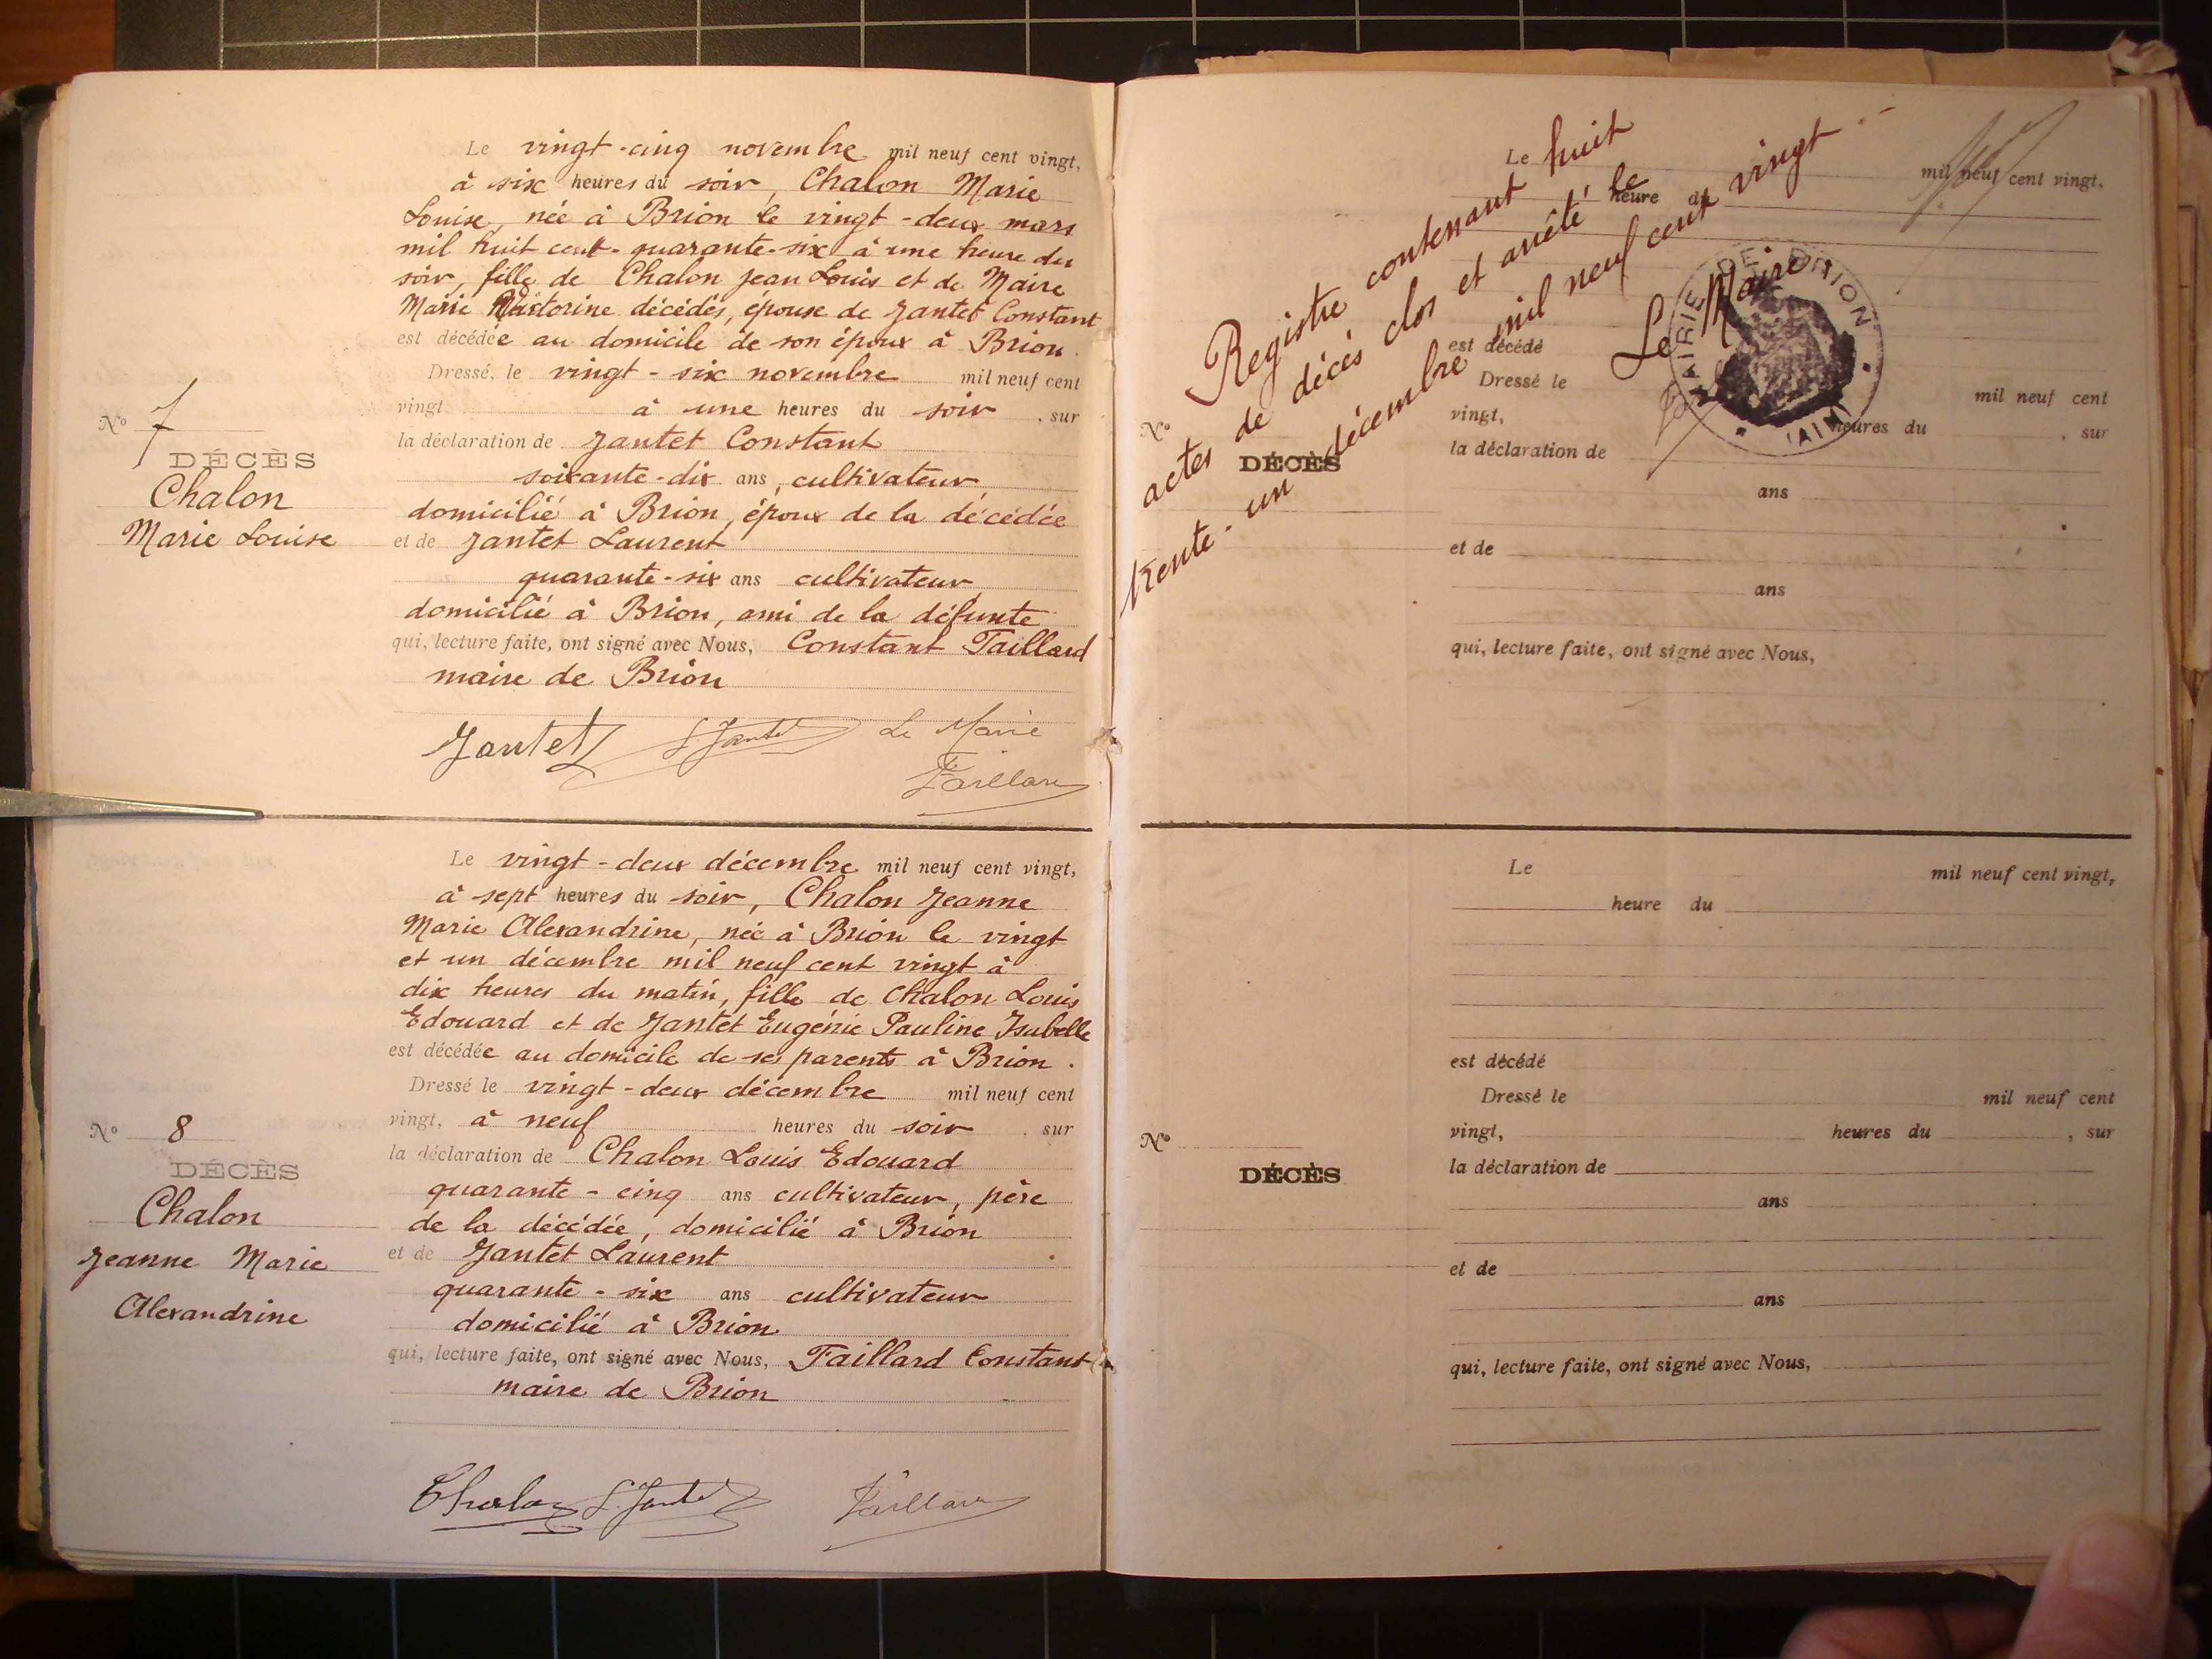 Le vingt-cinq novembre mil neuf cent vingt,
à six heures du soir, Chalon Marie
Louise, née à Brion le vingt-deux mars
mil huit cent-quarante-six à une heure du
soir, fille de Chalon Jean Louis et de Maire
Marie décédés, épouse de Jantet Constant
est décédée au domicile de son époux à Brion.
Dressé, le vingt-six novembre mil neuf cent
vingt à une heures du soir, sur
la déclaration de Jantet Constant
soixante-dix ans, cultivateur,
domicilié à Brion, époux de la décédée
et de Jantet Laurent
quarante-six ans cultivateur
domicilié à Brion, ami de la défunte
qui, lecture faite, ont signé avec Nous, Constant Taillard
maire de Brion
Jantet L. Jantet Le Maire
Taillard
No 7
DÉCÈS
Chalon
Marie Louise
Le vingt-deux décembre mil neuf cent vingt,
à sept heures du soir, Chalon Jeanne
Marie Alexandrine, née à Brion le vingt
et un décembre mil neuf cent vingt à
dix heures du matin, fille de Chalon Louis
Edouard et de Jantet Eugénie Pauline Isabelle
est décédée au domicile de ses parents à Brion.
Dressé le vingt-deux décembre mil neuf cent
vingt, à neuf heures du soir, sur
la déclaration de Chalon Louis Edouard
quarante-cinq ans cultivateur, père
de la décédée, domicilié à Brion
et de Jantet Laurent
quarante-six ans cultivateur
domicilié à Brion
qui, lecture faite, ont signé avec Nous, Taillard Constant
maire de Brion
Chalon L. Jantet Taillard
No 8
DÉCÈS
Chalon
Jeanne Marie
Alexandrine
Registre contenant huit
actes de décès clos et arrêté le
trente-un décembre mil neuf cent vingt
Le Maire
MAIRIE DE BRION
(AIN)
Le mil neuf cent vingt,
heure du
est décédé
Dressé le mil neuf cent
vingt, heures du , sur
la déclaration de
ans
et de
ans
qui, lecture faite, ont signé avec Nous,
No
DÉCÈS
Le mil neuf cent vingt,
heure du
est décédé
Dressé le mil neuf cent
vingt, heures du , sur
la déclaration de
ans
et de
ans
qui, lecture faite, ont signé avec Nous,
No
DÉCÈS